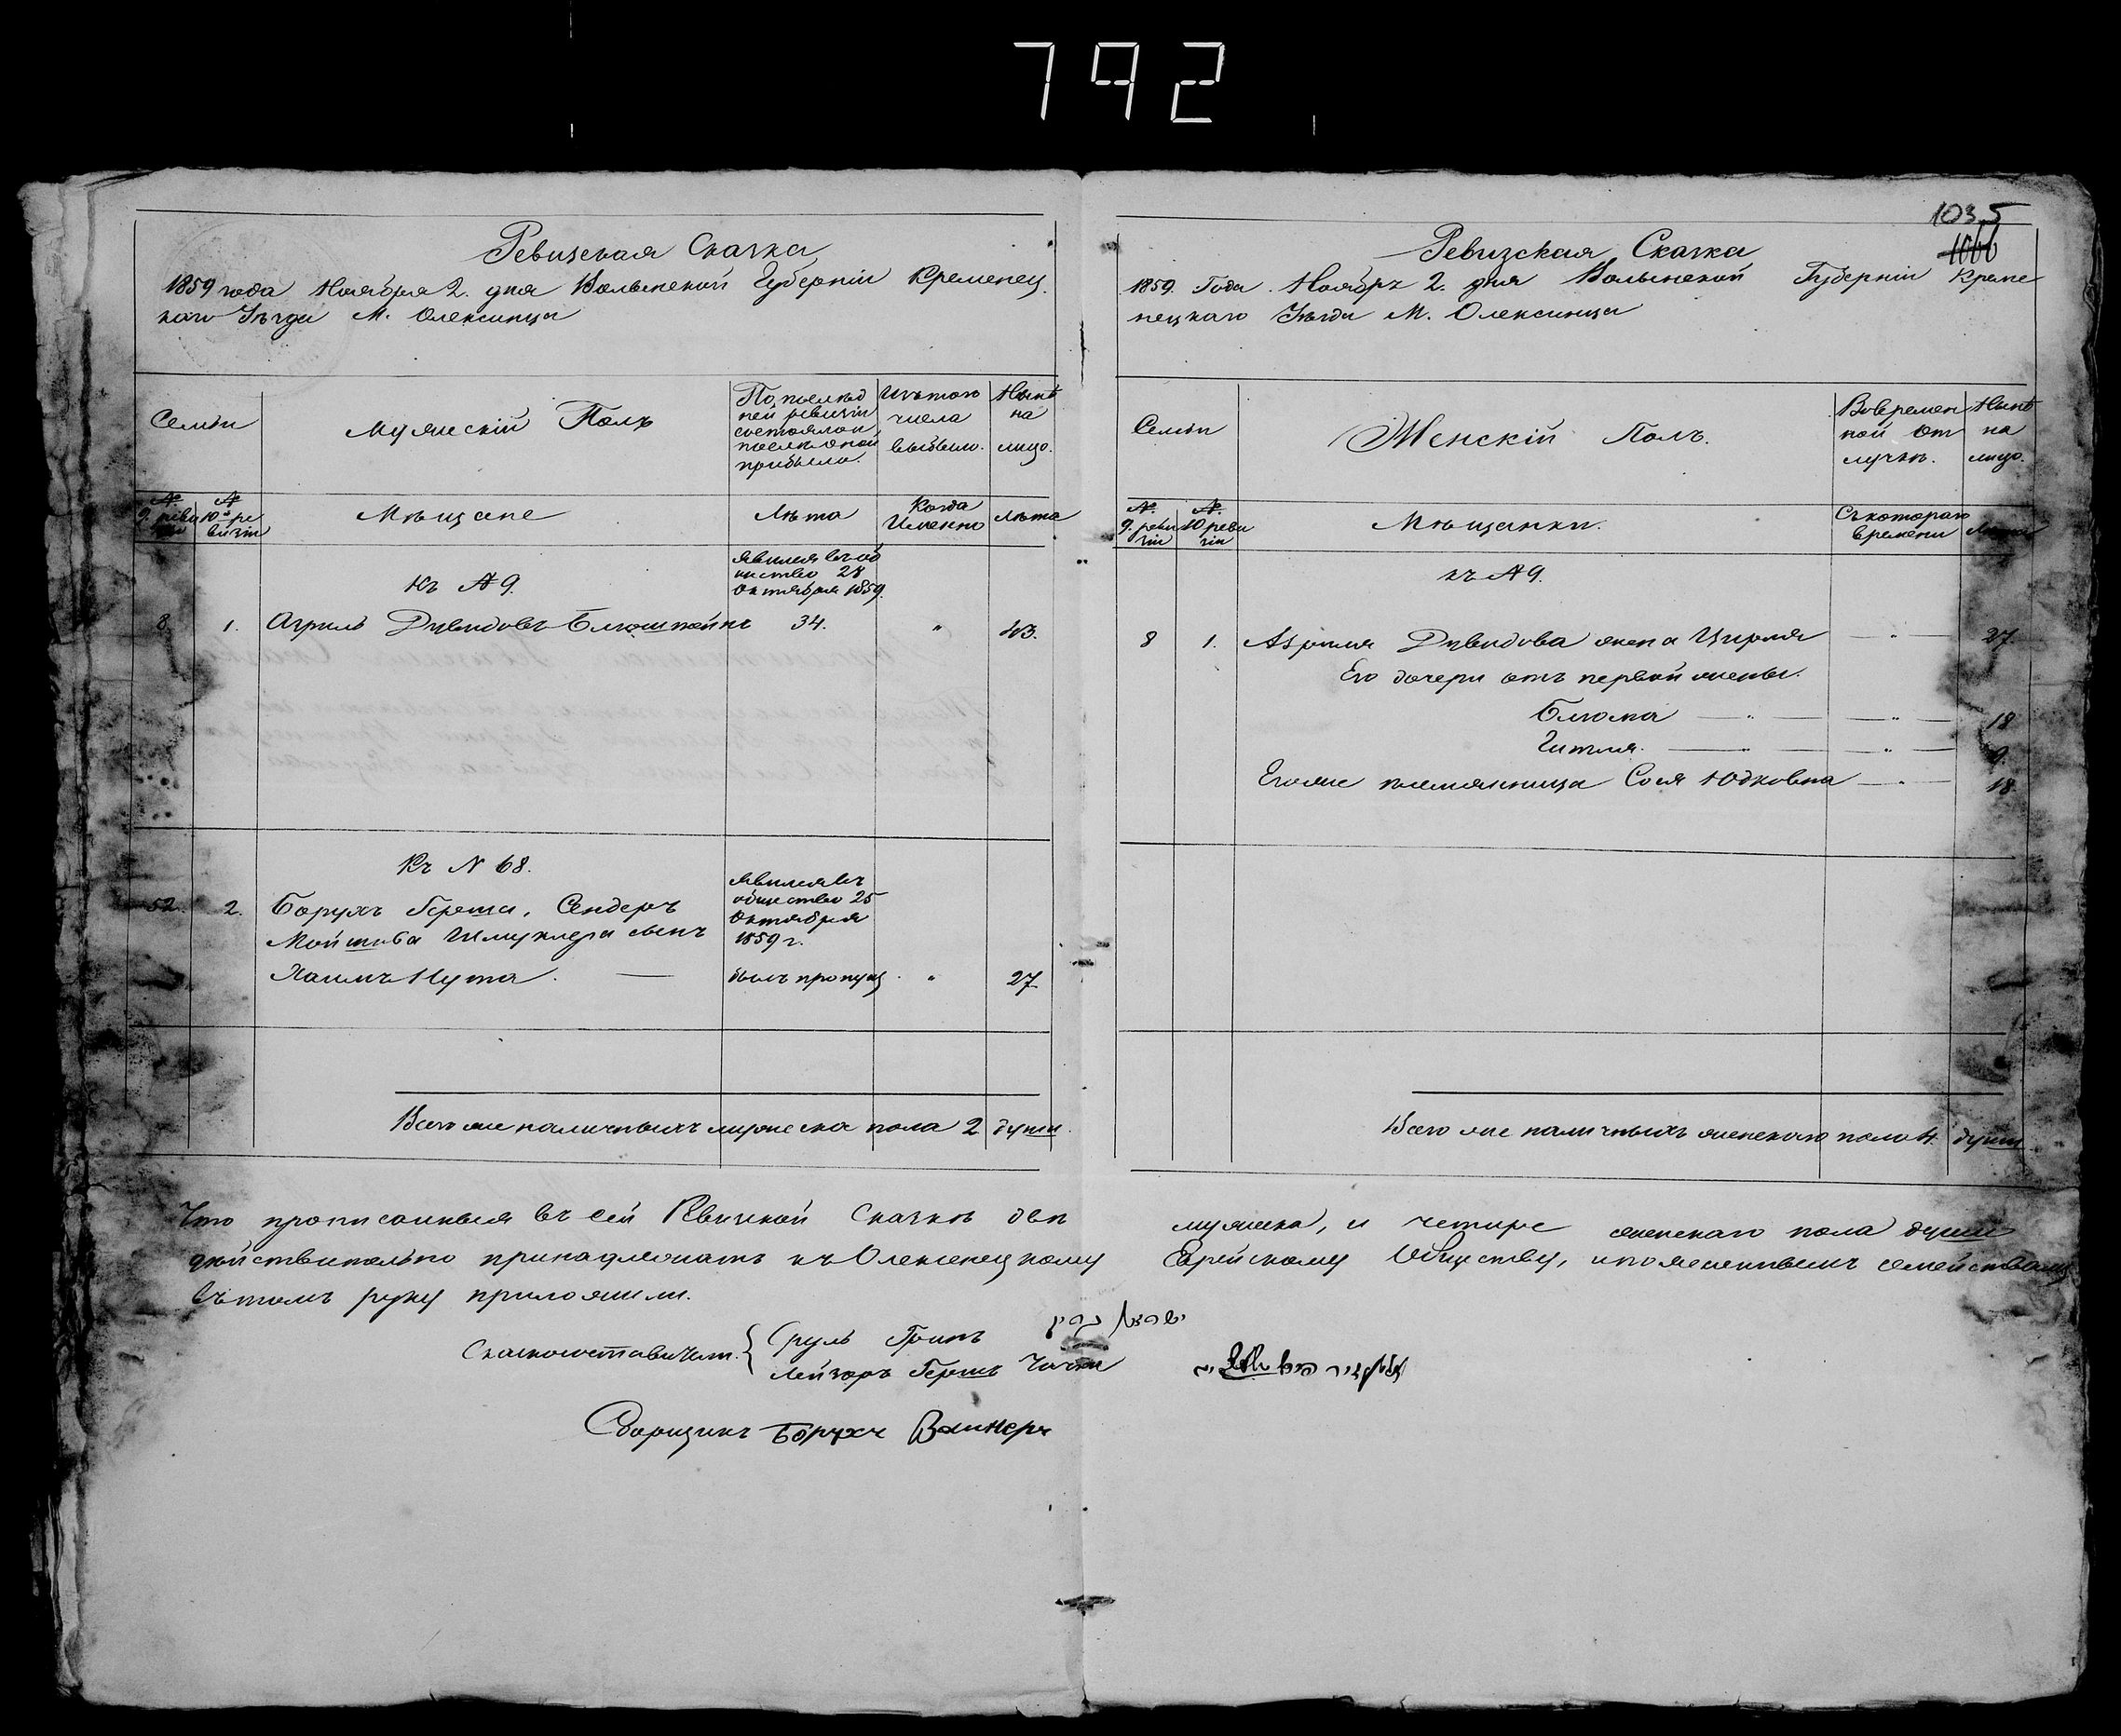 792
1035
1066
Ревизская Сказка
1859 года Ноября 2. дня Волынской Губерніи Кременец
каго Уѣзда М. Олексинца
Семьи
Мужескій Полъ
По послѣд
ней ревизіи
состояло и
послѣ оной
прибыло.
Изъ того
числа
выбыло.
Нынѣ
на
лицо.
№ 9. реви зіи
№ 10й ре визіи
Мѣщане
Лѣта
Когда
Именно
Лѣта
къ № 9.
явился въ об
щество 28
Октября 1859.
8 1. Азриль Дувидовъ Блюштейнъ 34. " 43.
Къ N 68.
52. 2. Борухъ Герша, Сендеръ
Мойшова Шмуклера сынъ
Хаимъ Нута. —
явился въ
общество 25
Октября
1859 г.
былъ пропущ. " 27
Всего же наличныхъ мужеска пола 2 души.
Ревизская Сказка
1859. Года Ноябрь 2. дня Волынской Губерніи Креме
нецкаго Уѣзда М. Олексинца
Семьи
Женскій Полъ.
Во времен
ной от
лучкѣ.
Нынѣ
на
лицо.
№. 9. реви зіи
№. 10 реви зіи
Мѣщанки.
Съ котораго
времени
Лѣта
къ № 9.
8 1. Азриля Дувидова жена Цирля — " — 27
Его дочери отъ первой жены.
Блюма — " — — " — 18
Гитля. — " — — " — 9.
Егоже племянница Сося Юдковна — " — 18
Всего же наличныхъ женскаго пола 4. души
Что прописанныя въ сей Ревизкой Сказкѣ двѣ мужеска, и четыре женскаго пола души
дѣйствительно принадлежатъ къ Олексенецкому Еврейскому Обществу, и помененнымъ семействамъ
въ томъ руку приложили.
Сказкосоставители. { Сруль Гринъ
Лейзоръ Гершъ
Сборщикъ Борухъ Ваинеръ